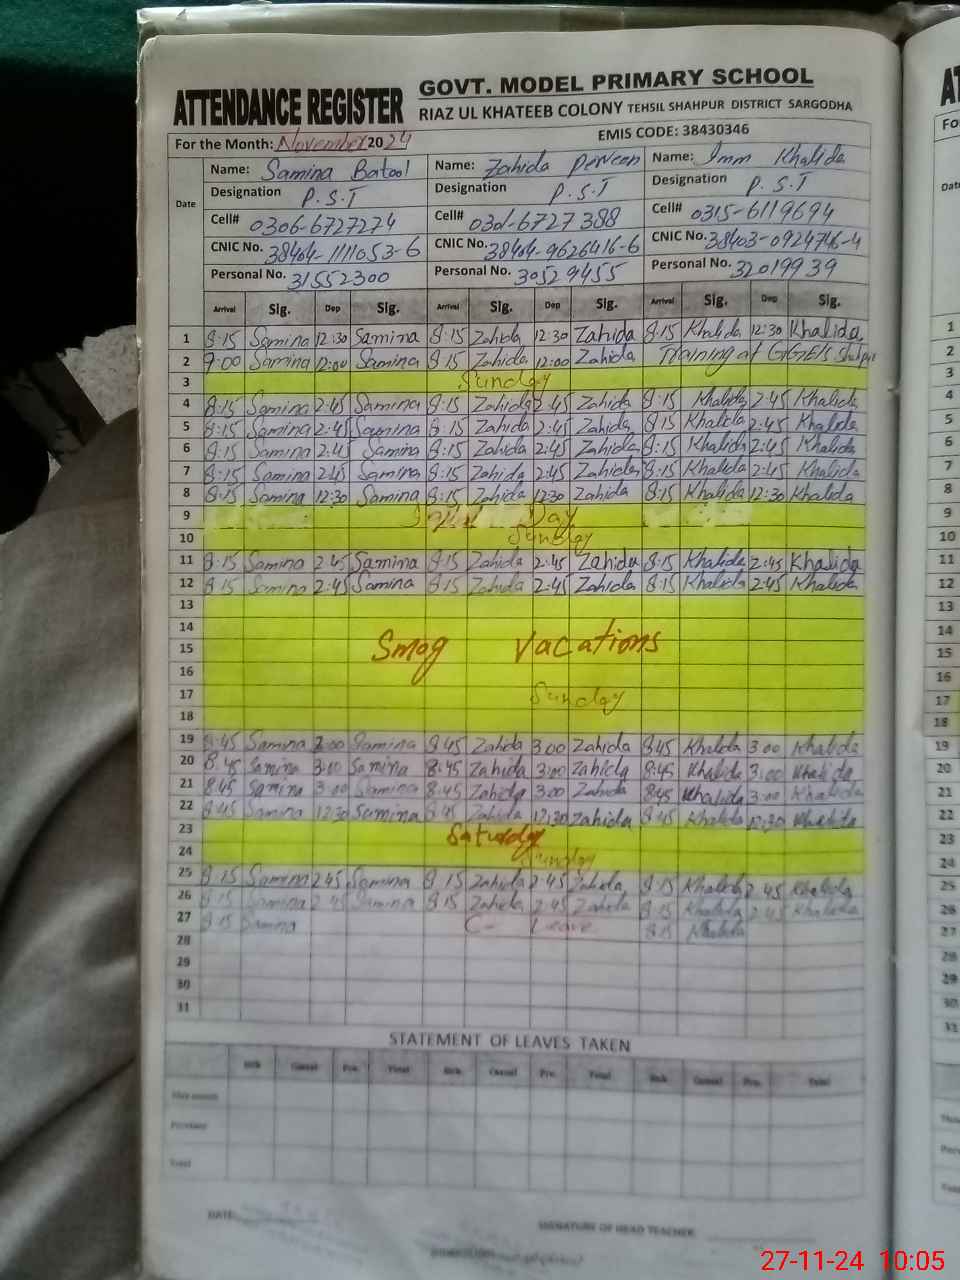 ATTENDANCE REGISTER
GOVT. MODEL PRIMARY SCHOOL
RIAZ UL KHATEEB COLONY TEHSIL SHAHPUR DISTRICT SARGODHA
For the Month: November 2024 EMIS CODE: 38430346
Date
Name: Samina Batool Name: Zahida Perveen Name: Imm Khalida
Designation P.S.T Designation P.S.T Designation P.S.T
Cell# 0306-6727274 Cell# 0301-6727388 Cell# 0315-6119694
CNIC No. 38404-1111053-6 CNIC No. 38404-9626416-6 CNIC No. 38403-0924746-4
Personal No. 31552300 Personal No. 30529455 Personal No. 32019939
Arrival Sig. Dep Sig. Arrival Sig. Dep Sig. Arrival Sig. Dep Sig.
1 8:15 Samina 12:30 Samina 8:15 Zahida 12:30 Zahida 8:15 Khalida 12:30 Khalida
2 9:00 Samina 12:00 Samina 8:15 Zahida 12:00 Zahida Training at
3 Sunday
4 8:15 Samina 2:45 Samina 8:15 Zahida 2:45 Zahida 8:15 Khalida 2:45 Khalida
5 8:15 Samina 2:45 Samina 8:15 Zahida 2:45 Zahida 8:15 Khalida 2:45 Khalida
6 8:15 Samina 2:45 Samina 8:15 Zahida 2:45 Zahida 8:15 Khalida 2:45 Khalida
7 8:15 Samina 2:45 Samina 8:15 Zahida 2:45 Zahida 8:15 Khalida 2:45 Khalida
8 8:15 Samina 12:30 Samina 8:15 Zahida 1230 Zahida 8:15 Khalida 12:30 Khalida
9 Day
10 Sunday
11 8:15 Samina 2 45 Samina 8:15 Zahida 2:45 Zahida 8:15 Khalida 2:45 Khalida
12 8:15 Samina 2:45 Samina 8:15 Zahida 2:45 Zahida 8:15 Khalida 2:45 Khalida
13
14
15 Smog vacations
16
17 Sunday
18
19 8:45 Samina 3:00 Samina 8 45 Zahida 3:00 Zahida 8:45 Khalida 3:00 Khalida
20 8:45 Samina 3:00 Samina 8:45 Zahida 3:00 Zahida 8:45 Khalida 3:00 Khalida
21 8:45 Samina 3:00 Samina 8:45 Zahida 3:00 Zahida 8:45 Khalida 3:00 Khalida
22 8:45 Samina 12:30 Samina 8:45 Zahida 12:30 Zahida 8:45 Khalida 12:30 Khalida
23 Saturday
24 Sunday
25 8:15 Samina 2 45 Samina 8:15 Zahida 2:45 Zahida 8:15 Khalida 2:45 Khalida
26 8:15 Samina 2:45 Samina 8:15 Zahida 2:45 Zahida 8:15 Khalida 2:45 Khalida
27 8:15 Samina C- Leave 8:15 Khalida
28
29
30
31
STATEMENT OF LEAVES TAKEN
Sick Casual Pre. Total Sick Casual Pre. Total Sick Casual Pre. Total
This month
Previous
Total
DATE:
SIGNATURE OF HEAD TEACHER
27-11-24 10:05